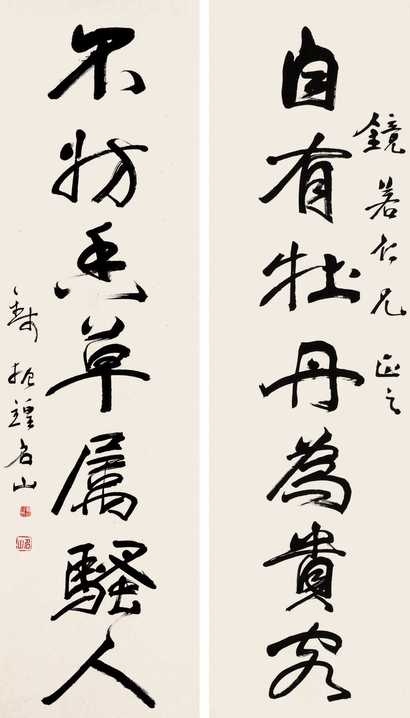 鏡若仁兄正之
自有牡丹為貴客
不妨香草属騷人
錢振鍠名山